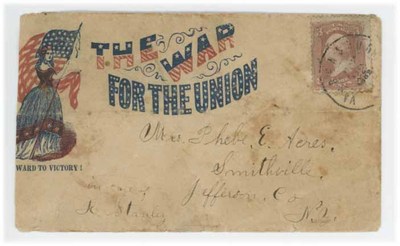 THE WAR
FOR THE UNION
WARD TO VICTORY!
VA
Mrs. Phebe E. Acres,
Smithville,
Jefferson, Co
N.Y.